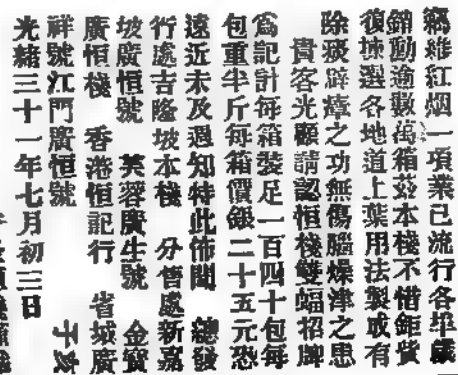 竊維紅烟一項業已流行各埠歲
銷動逾數萬箱茲本棧不惜鉅貲
復揀選各地道上葉用法製成有
除痰辟瘴之功無傷腦燥津之患
貴客光顧請認恒棧雙蝠招牌
為記計每箱裝足一百四十包每
包重半斤每箱價銀二十五元恐
遠近未及週知特此佈聞 總發
行處吉隆坡本棧 分售處新嘉
坡廣恒號 芙蓉廣生號 金寶
廣恒棧 香港恒記行 省城廣
祥號江門廣恒號
光緒三十一年七月初三日